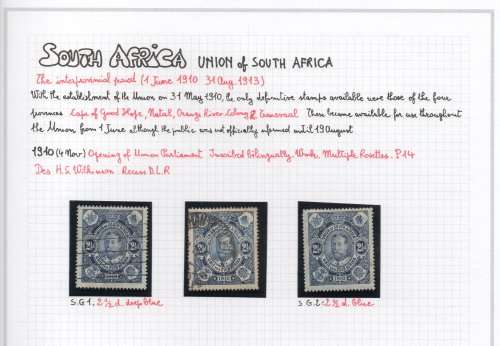 SOUTH AFRICA UNION of SOUTH AFRICA
The interprovincial period (1 June 1910 31 Aug. 1913)
With the establishment of the Union on 31 May 1910, the only definitive stamps available were those of the four
provinces Cape of Good Hope, Natal, Orange River Colony & Transvaal These became available for use throughout
the Union from 1 June although the public was not officially informed until 19 August
1910 (4 Nov) Opening of Union Parliament Inscribed bilingually. Wmk. Multiple Rosettes. P.14
Des H.S. Wilkinson Recess D.L.R
2½d 2½d 2½d
1910 1910 1910
S.G 1. 2½d. deep blue
S.G 2. 2½d. blue